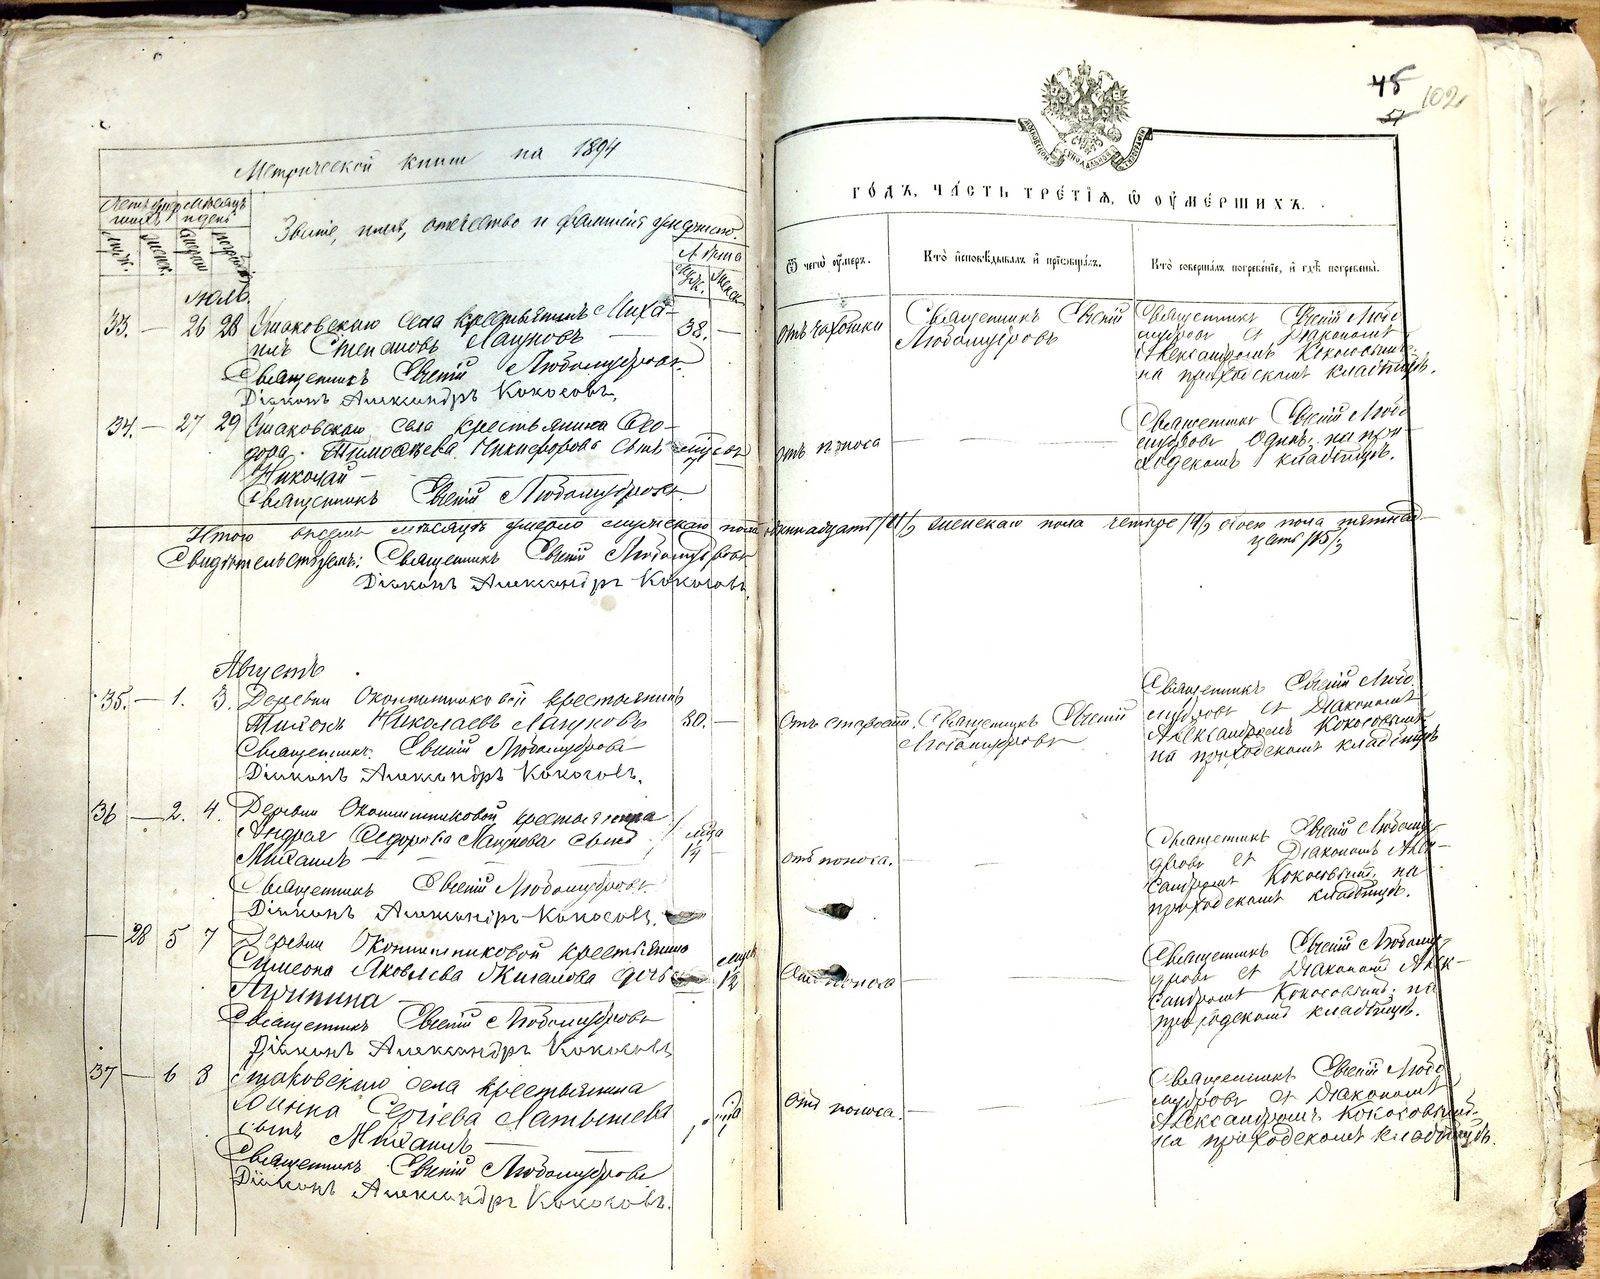 45
102
57
Метрической книги на 1894
ГО́ДЪ, ЧА́СТЬ ТРЕ́ТІѦ, Ѿ ОУ҆МЕ́РШИХЪ.
Мѣсяцъ
и день
Званіе, имя, отчество и фамилія умершаго.
Лѣта
Муж.
Женск.
Муж.
Женск.
Ѿ чегѡ̀ оу҆́меръ.
Кто̀ и҆сповѣ́дывалъ и҆ прїѡбща́лъ.
Кто̀ соверша́лъ погребе́нїе, и҆ гдѣ̀ погребены̀.
Іюль.
33. — 26 28 Ушаковскаго села крестьянинъ Миха-
илъ Степановъ Лагуновъ — 38. —
Священникъ Евгеній Любомудровъ.
Діаконъ Александръ Кокосовъ.
отъ чахотки
Священникъ Евгеній
Любомудровъ
Священникъ Евгеній Любо
мудровъ съ Діакономъ
Александромъ Кокосовымъ
на приходскомъ кладбищѣ.
34. — 27 29 Ушаковскаго села крестьянина Ѳео-
дора Тимоѳеева Никифорова сынъ
Николай —
Священникъ Евгеній Любомудровъ
отъ поноса — —
Священникъ Евгеній Любо
мудровъ одинъ, на при-
ходскомъ кладбищѣ.
Итого въ семъ мѣсяцѣ умерло мужскаго пола одиннадцать /11/, женскаго пола четыре /4/, обоего пола пятнад-
цать /15/,
Свидѣтельствуемъ: Священникъ Евгеній Любомудровъ
Діаконъ Александръ Кокосовъ.
Августъ
35. — 1. 3. Деревни Окотишниковой крестьянинъ
Николаевъ Лагуновъ 80. —
Священникъ Евгеній Любомудровъ
Діаконъ Александръ Кокосовъ.
Отъ старости.
Священникъ Евгеній
Любомудровъ
Священникъ Евгеній Любо
мудровъ съ Діакономъ
Александромъ Кокосовымъ
на приходскомъ кладбищѣ
36 — 2. 4. Деревни Окотишниковой крестьянина
Андрея Ѳедорова Лагунова сынъ
Михаилъ — — —
Священникъ Евгеній Любомудровъ
Діаконъ Александръ Кокосовъ.
отъ поноса. — —
Священникъ Евгеній Любому-
дровъ съ Діакономъ Алек-
сандромъ Кокосовымъ, на
приходскомъ кладбищѣ.
— 28 5 7 Деревни Окотишниковой крестьянина
Симеона Яковлева дочь
Агрипина —
Священникъ Евгеній Любомудровъ
Діаконъ Александръ Кокосовъ
отъ поноса —
Священникъ Евгеній Любому-
дровъ съ Діакономъ Алек-
сандромъ Кокосовымъ, на
приходскомъ кладбищѣ.
37 — 6 8 Ушаковскаго села крестьянина
Сергіева Латышева
сынъ Михаилъ —
Священникъ Евгеній Любомудровъ
Діаконъ Александръ Кокосовъ.
отъ поноса. — —
Священникъ Евгеній Любо
мудровъ съ Діакономъ
Александромъ Кокосовымъ
на приходскомъ кладбищѣ.